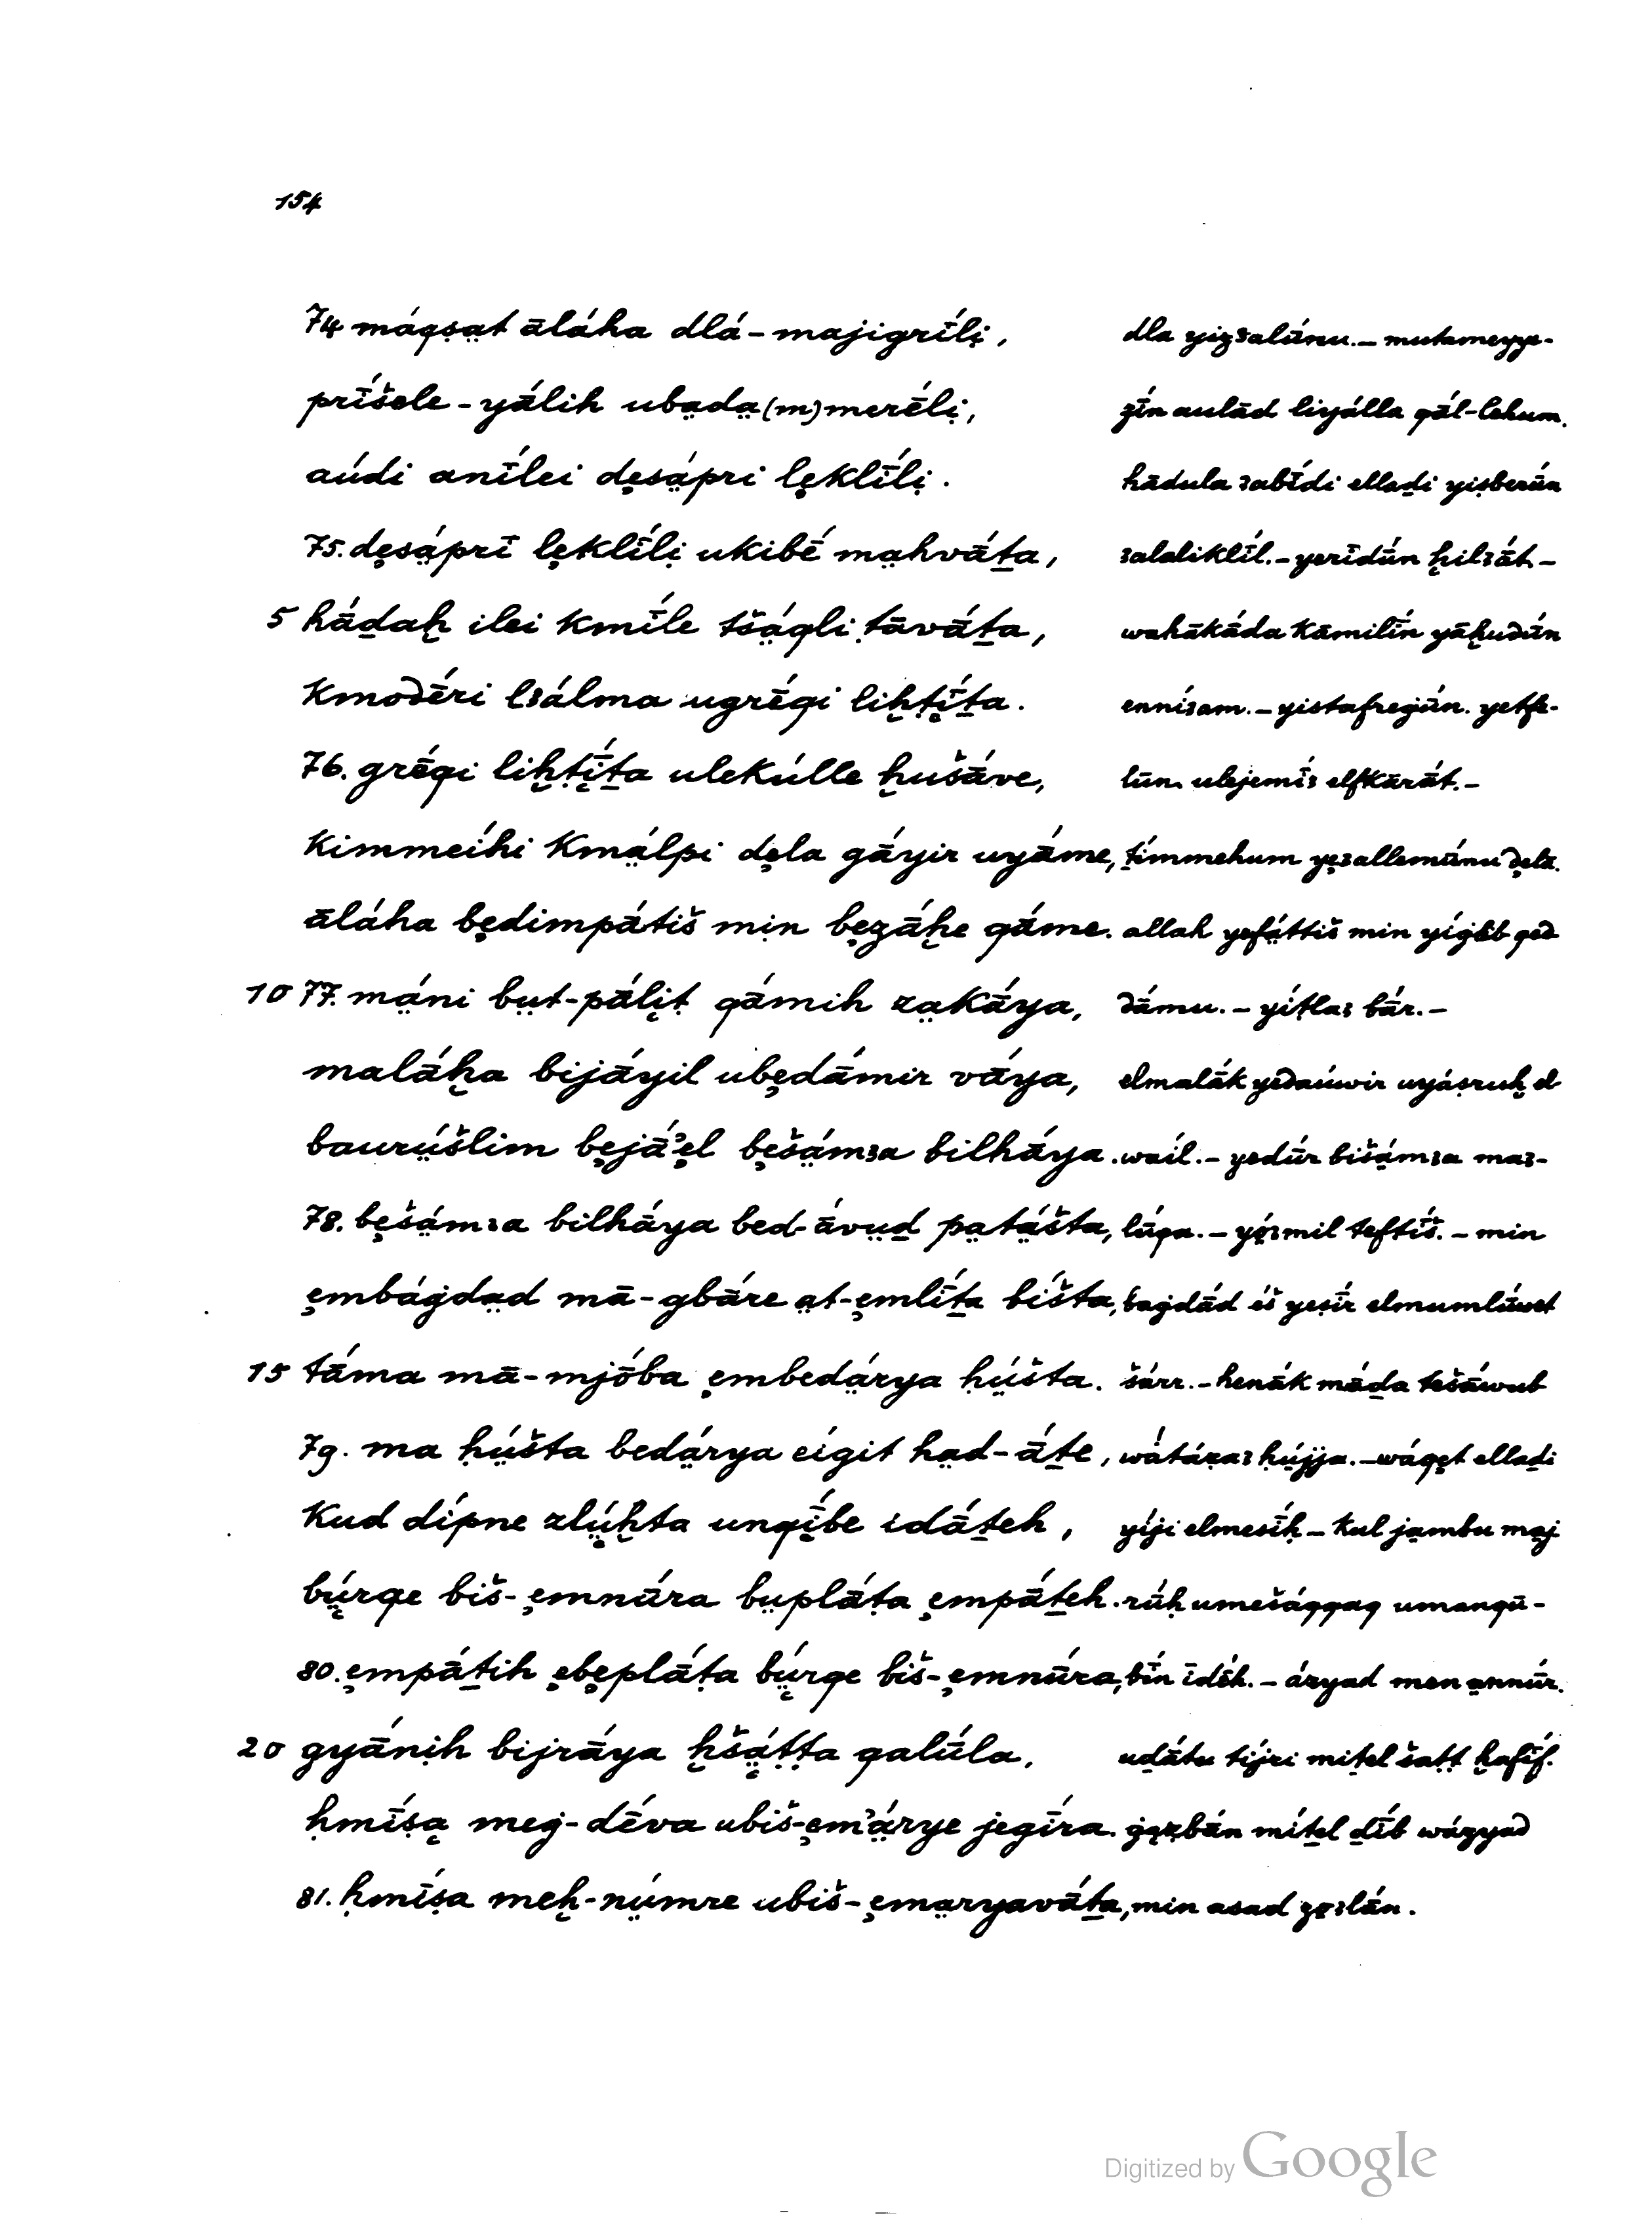 154
74 máqṣa̤t āláha dlá-majigrī́li̤,
prī́šele-yálih uba̤da̤(m)merḗli̤,
aúdi anī́lei dȩsá̤pri lȩklī́li̤.
75. dȩsá̤prī lȩklī́li̤ ukibḗ ma̤hvā́ṯa,
5 hā́ḏaḫ ilei kmī́le tšá̤qli ṭāvā́ṯa,
kmoδḗri lꜫálma ugrḗqi liḫṭī́ṯa.
76. grḗqi liḫṭī́ṯa ulekúlle ḫušā́ve,
kimmeíhi kmá̤lpi dȩla gā́yir uyā́me,
āláha bȩdimpā́tiš min bȩzā́ḫe qā́me.
10 77. má̤ni bṳt-pā́li̤ṭ qā́mih za̤kā́ya,
malā́ḫa bijā́yil ubȩdā́mir vā́ya,
baurṳ́šlim bȩjā́ʾȩl bȩšá̤mꜫa bilhā́ya.
78. bȩšá̤mꜫa bilhā́ya bed-ā́vṳḏ pa̤tá̤šta,
ȩmbáġda̤d mā-gbā́re a̤t-ȩmlī́ṯa bíšta,
15 tā́ma mā-mjṓba ȩmbedá̤rya ḥṳ́šta.
79. ma ḥṳ́šta bedá̤rya eígit ha̤d-ā́ṯe,
kud dípne zlṳ́ḫta unqī́be īdā́ṯeh,
bṳ́rqe biš-ȩmnū́ra bṳplā́ṭa ȩmpā́ṯeh.
80. ȩmpā́ṯih ȩbȩplā́ṭa bṳ́rqe biš-ȩmnū́ra,
20 gyā́ni̤h bijrā́ya ḫšá̤ṭṭa qalū́la,
ḥmī́ṣa meġ-dḗva ubiš-ȩmʾá̤rye jegī́ra.
81. ḥmī́ṣa meḫ-nṳ́mre ubiš-ȩma̤ryavā́ṯa,
dla yizꜫalū́nu. – mutameyye-
zī́n aulā́d liyálla qā́l-lehum.
hādula ꜫabī́di elladi yiṣberū́n
ꜫalaliklī́l. – yerīdū́n ḫilꜫā́t –
wahākā́da kāmilī́n yāḫuδū́n
enníꜫam. – yistafreġū́n. yetfe-
lūn. ulejemī́ꜫ elfkārā́t. –
ṯímmehum yȩꜫallemū́nu δȩla.
allah yefáttiš min yíġȩb qeδ
δā́mu. – yíṭlaꜫ bā́r. –
elmalā́k yeδaúwir uyáṣruḫ el
waíl. – yedū́r bišá̤mꜫa maꜫ-
lū́qa. – yȩ́ꜫmil teftī́š. – min
baġdā́d éš yeṣī́r elmumlū́wet
šárr. – henā́k mā́ḏa tešā́wub
wátáẓaꜫ ḥṳ́jja. – wáqȩt ellaḏi
yíji elmesī́ḥ – kul jambu maj
rūḥ umešáqqaq umanqū-
bī́n īdéh. – ázyad men annū́r.
uḏātu tíjri miṯel šaṭṭ ḫafī́f.
ġȩẓbā́n míṯel ḏī́b wázyaδ
min asad zȩꜫlā́n.
Digitized by Google